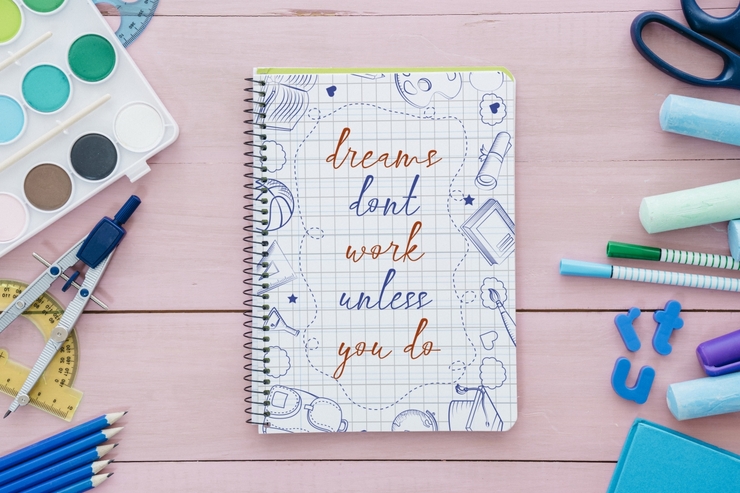 dreams
dont
work
unless
you do
r
t
u